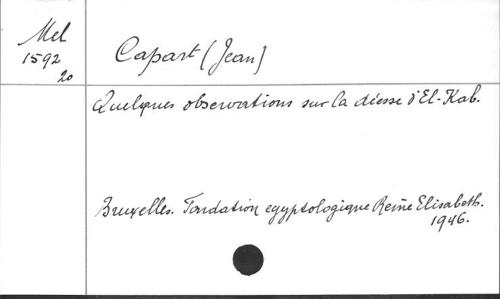 Mel
1592
20
Capart (Jean)
Quelques observations sur la déesse d'El-Kab.
Bruxelles. Fondation egyptologique Reine Elisabeth.
1946.